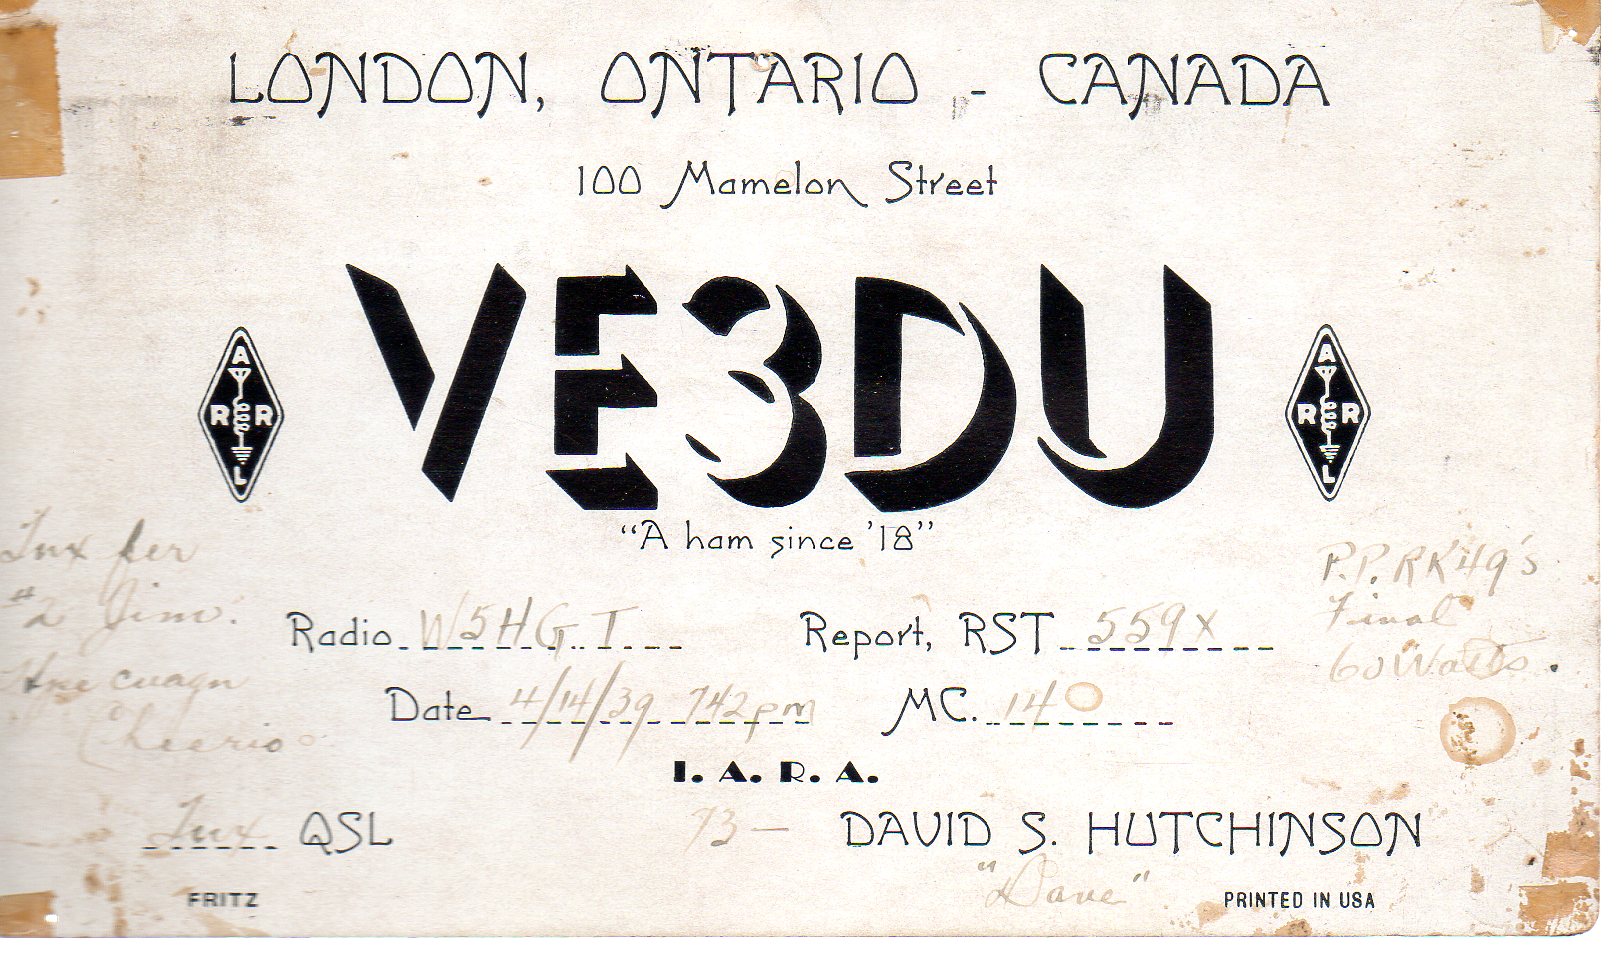 LONDON, ONTARIO - CANADA
100 Mamelon Street
VE3DU
A
R R
L
A
R R
L
"A ham since '18"
Tnx fer
#2 Jim.
Hpe cuagn
Cheerio
P.P. RK49's
Final
60 Watts.
Radio W5HGT Report, RST 559X
Date 4/14/39 742pm MC. 14
I. A. R. A.
Tnx QSL 73 - DAVID S. HUTCHINSON
"Dave"
FRITZ PRINTED IN USA